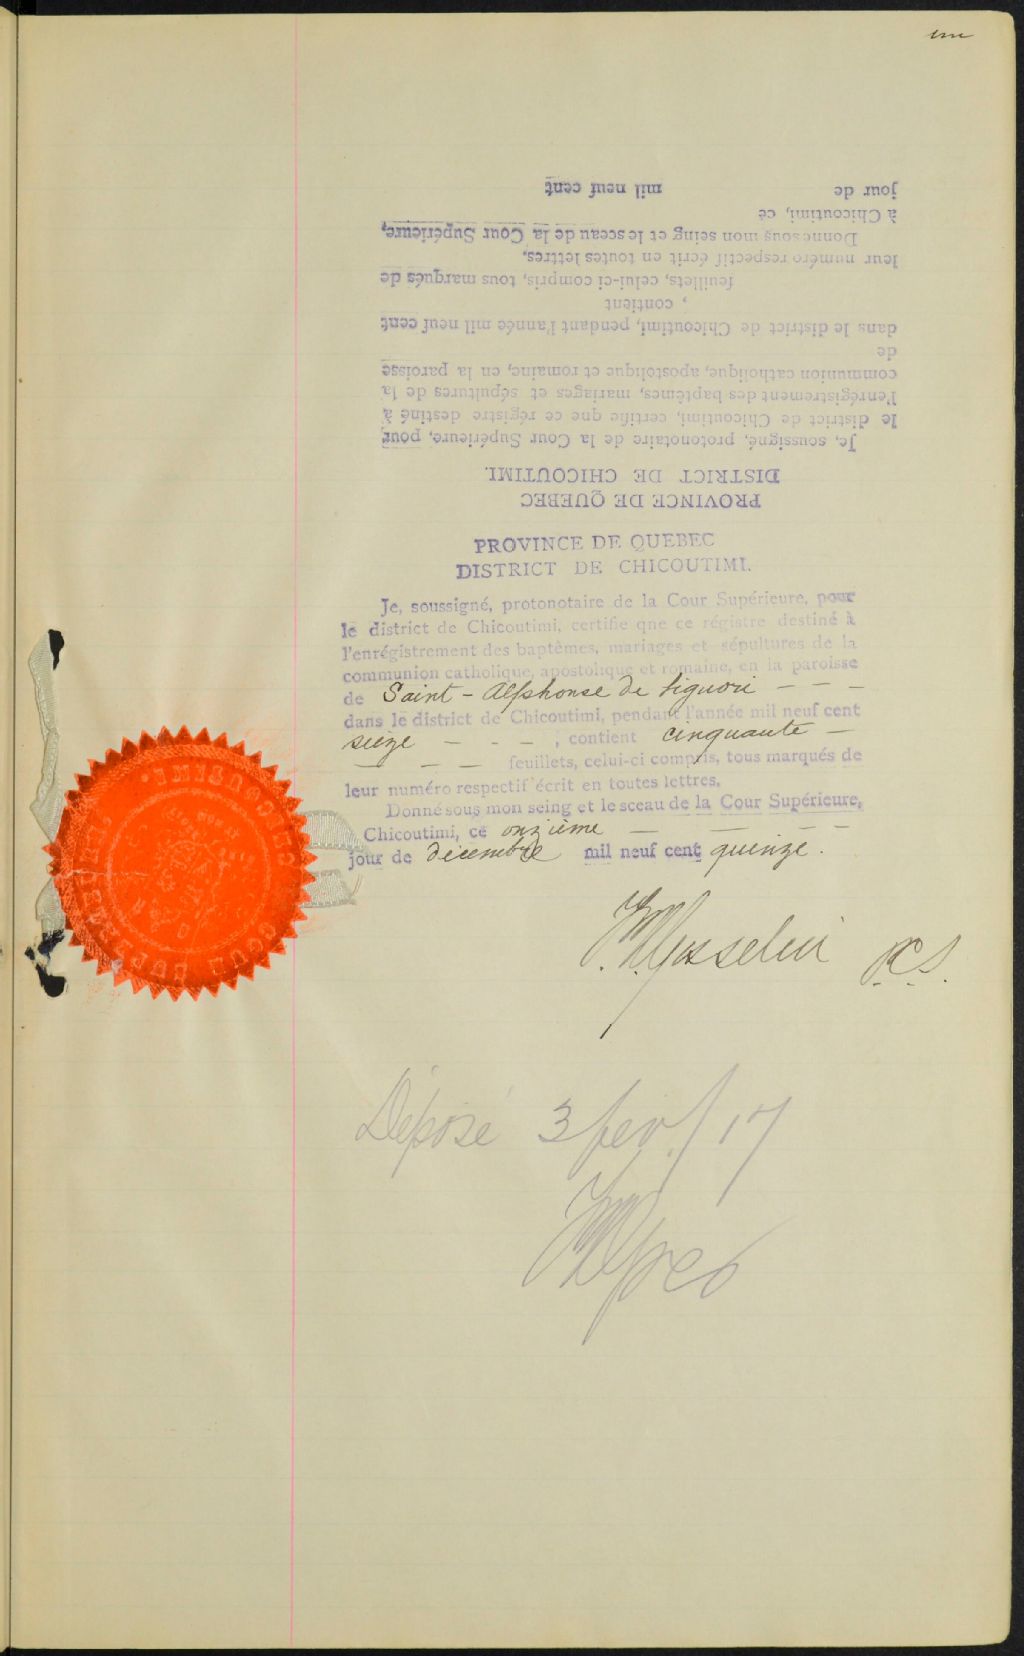 un
PROVINCE DE QUEBEC
DISTRICT DE CHICOUTIMI.
Je, soussigné, protonotaire de la Cour Supérieure, pour
le district de Chicoutimi, certifie que ce régistre destiné à
l'enrégistrement des baptêmes, mariages et sépultures de la
communion catholique, apostolique et romaine, en la paroisse
de
dans le district de Chicoutimi, pendant l'année mil neuf cent
, contient
feuillets, celui-ci compris, tous marqués de
leur numéro respectif écrit en toutes lettres.
Donné sous mon seing et le sceau de la Cour Supérieure,
à Chicoutimi, ce
jour de mil neuf cent
PROVINCE DE QUEBEC
DISTRICT DE CHICOUTIMI.
Je, soussigné, protonotaire de la Cour Supérieure, pour
le district de Chicoutimi, certifie qne ce régistre destiné à
l'enrégistrement des baptêmes, mariages et sépultures de la
communion catholique, apostolique et romaine, en la paroisse
de Saint-Alphonse de Liguori - - -
dans le district de Chicoutimi, pendant l'année mil neuf cent
seize - - - ; contient cinquante -
- - - feuillets, celui-ci compris, tous marqués de
leur numéro respectif écrit en toutes lettres.
Donné sous mon seing et le sceau de la Cour Supérieure,
Chicoutimi, ce onzième - - - -
jour de décembre mil neuf cent quinze.
P.C.S.
Déposé 3 fev./17